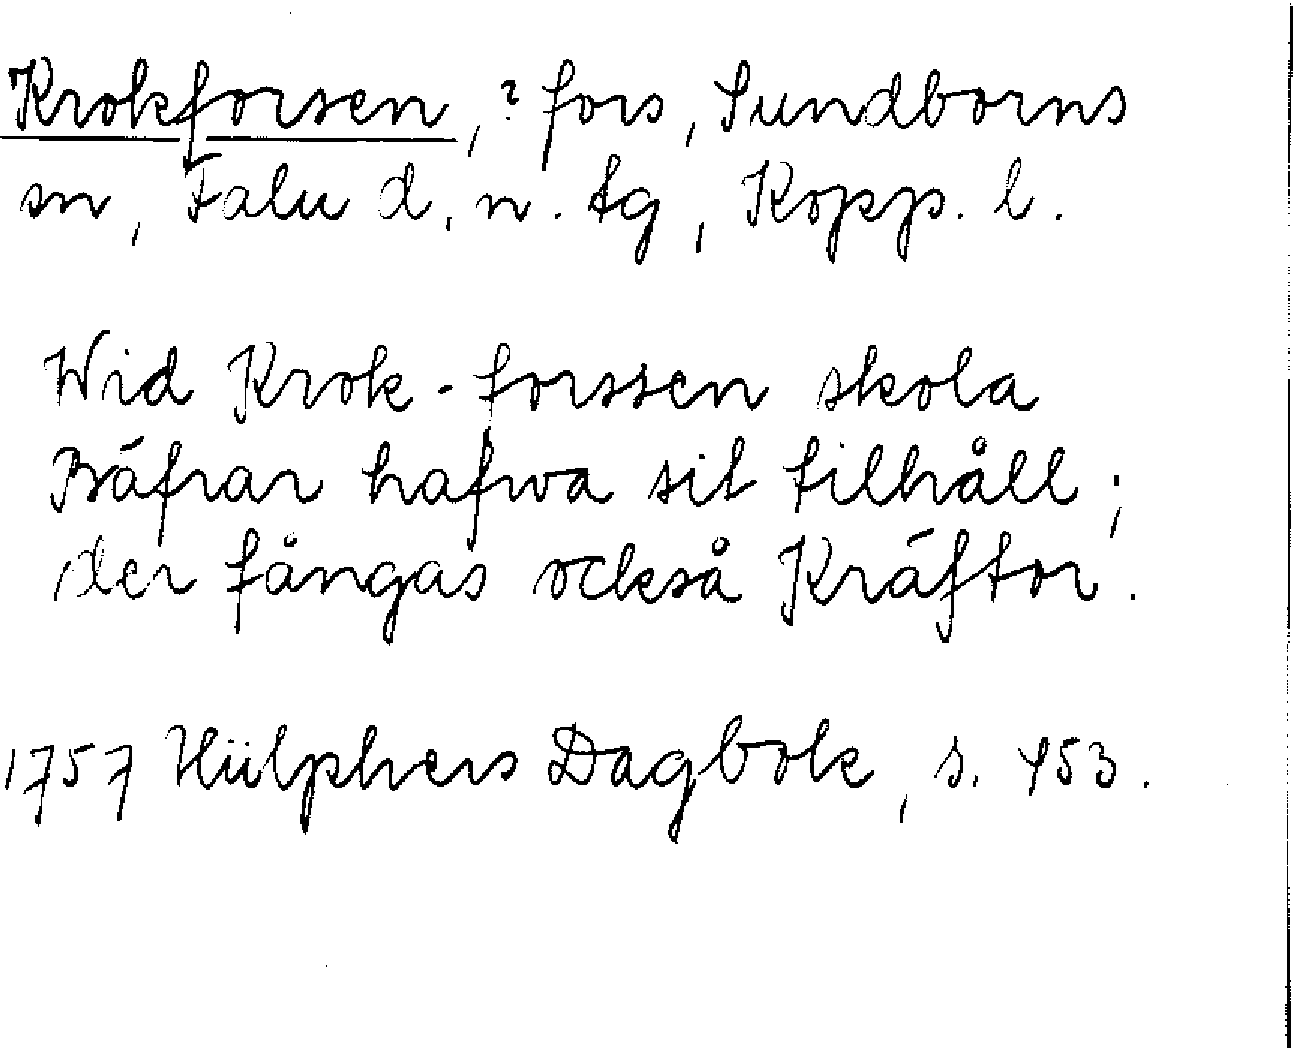 Krokforsen, ? fors, Sundborns
sn, Falu d. n. tg, Kopp. l.
Wid Krok-forssen skola
Bäfrar hafwa sit tilhåll;
der fångas också Kräftor.
1757 Hülphers Dagbok, s. 453.